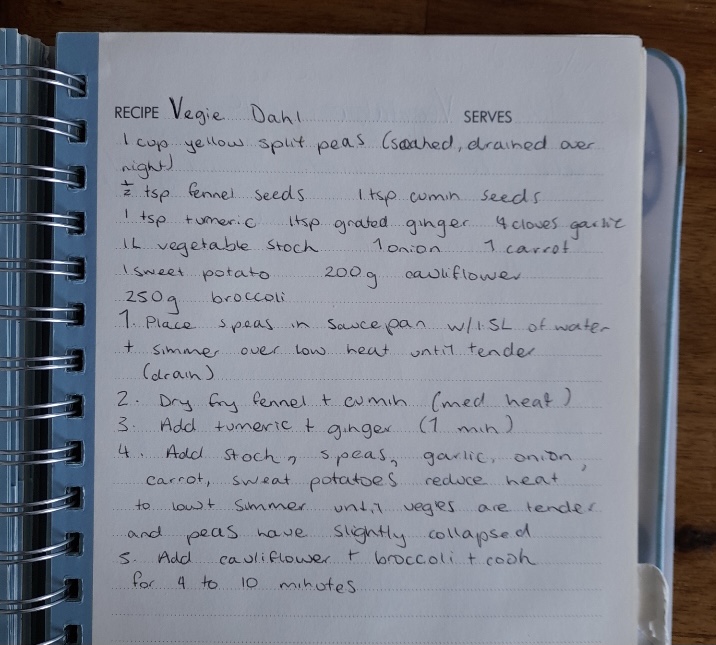 RECIPE Vegie Dahl SERVES
1 cup yellow split peas (soaked, drained over
night)
½ tsp fennel seeds 1 tsp cumin seeds
1 tsp tumeric 1tsp grated ginger 4 cloves garlic
1L vegetable stock 1 onion 1 carrot
1 sweet potato 200g cauliflower
250g broccoli
1. Place s.peas in saucepan w/1.5L of water
+ simmer over low heat until tender
(drain)
2. Dry fry fennel + cumin (med heat)
3. Add tumeric + ginger (1 min)
4. Add stock, s.peas, garlic, onion,
carrot, sweat potatoes reduce heat
to low + simmer until vegies are tender
and peas have slightly collapsed
5. Add cauliflower + broccoli + cook
for 4 to 10 minutes